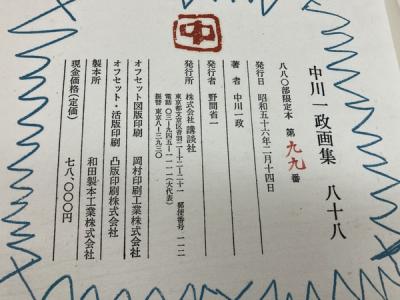 中
中川一政画集 八十八
八八〇部限定本 第九九番
発行日 昭和五十六年二月十四日
著者 中川一政
発行者 野間省一
発行所 株式会社 講談社
東京都文京区音羽二-十二-二十一 郵便番号一一二
電話 〇三-九四五-一一一一(大代表)
振替 東京八-三九三〇
オフセット図版印刷 岡村印刷工業株式会社
オフセット・活版印刷 凸版印刷株式会社
製本所 和田製本工業株式会社
現金価格(定価) 七八、〇〇〇円